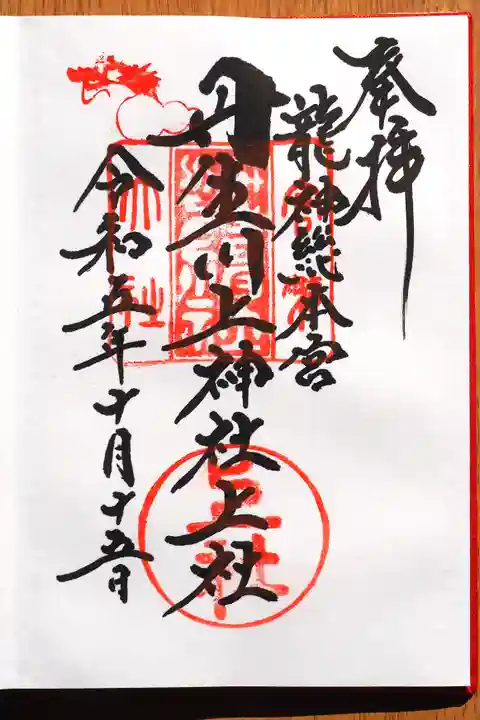 奉拝
龍神総本宮
丹生川上神社上社
令和五年十月十五日
上社